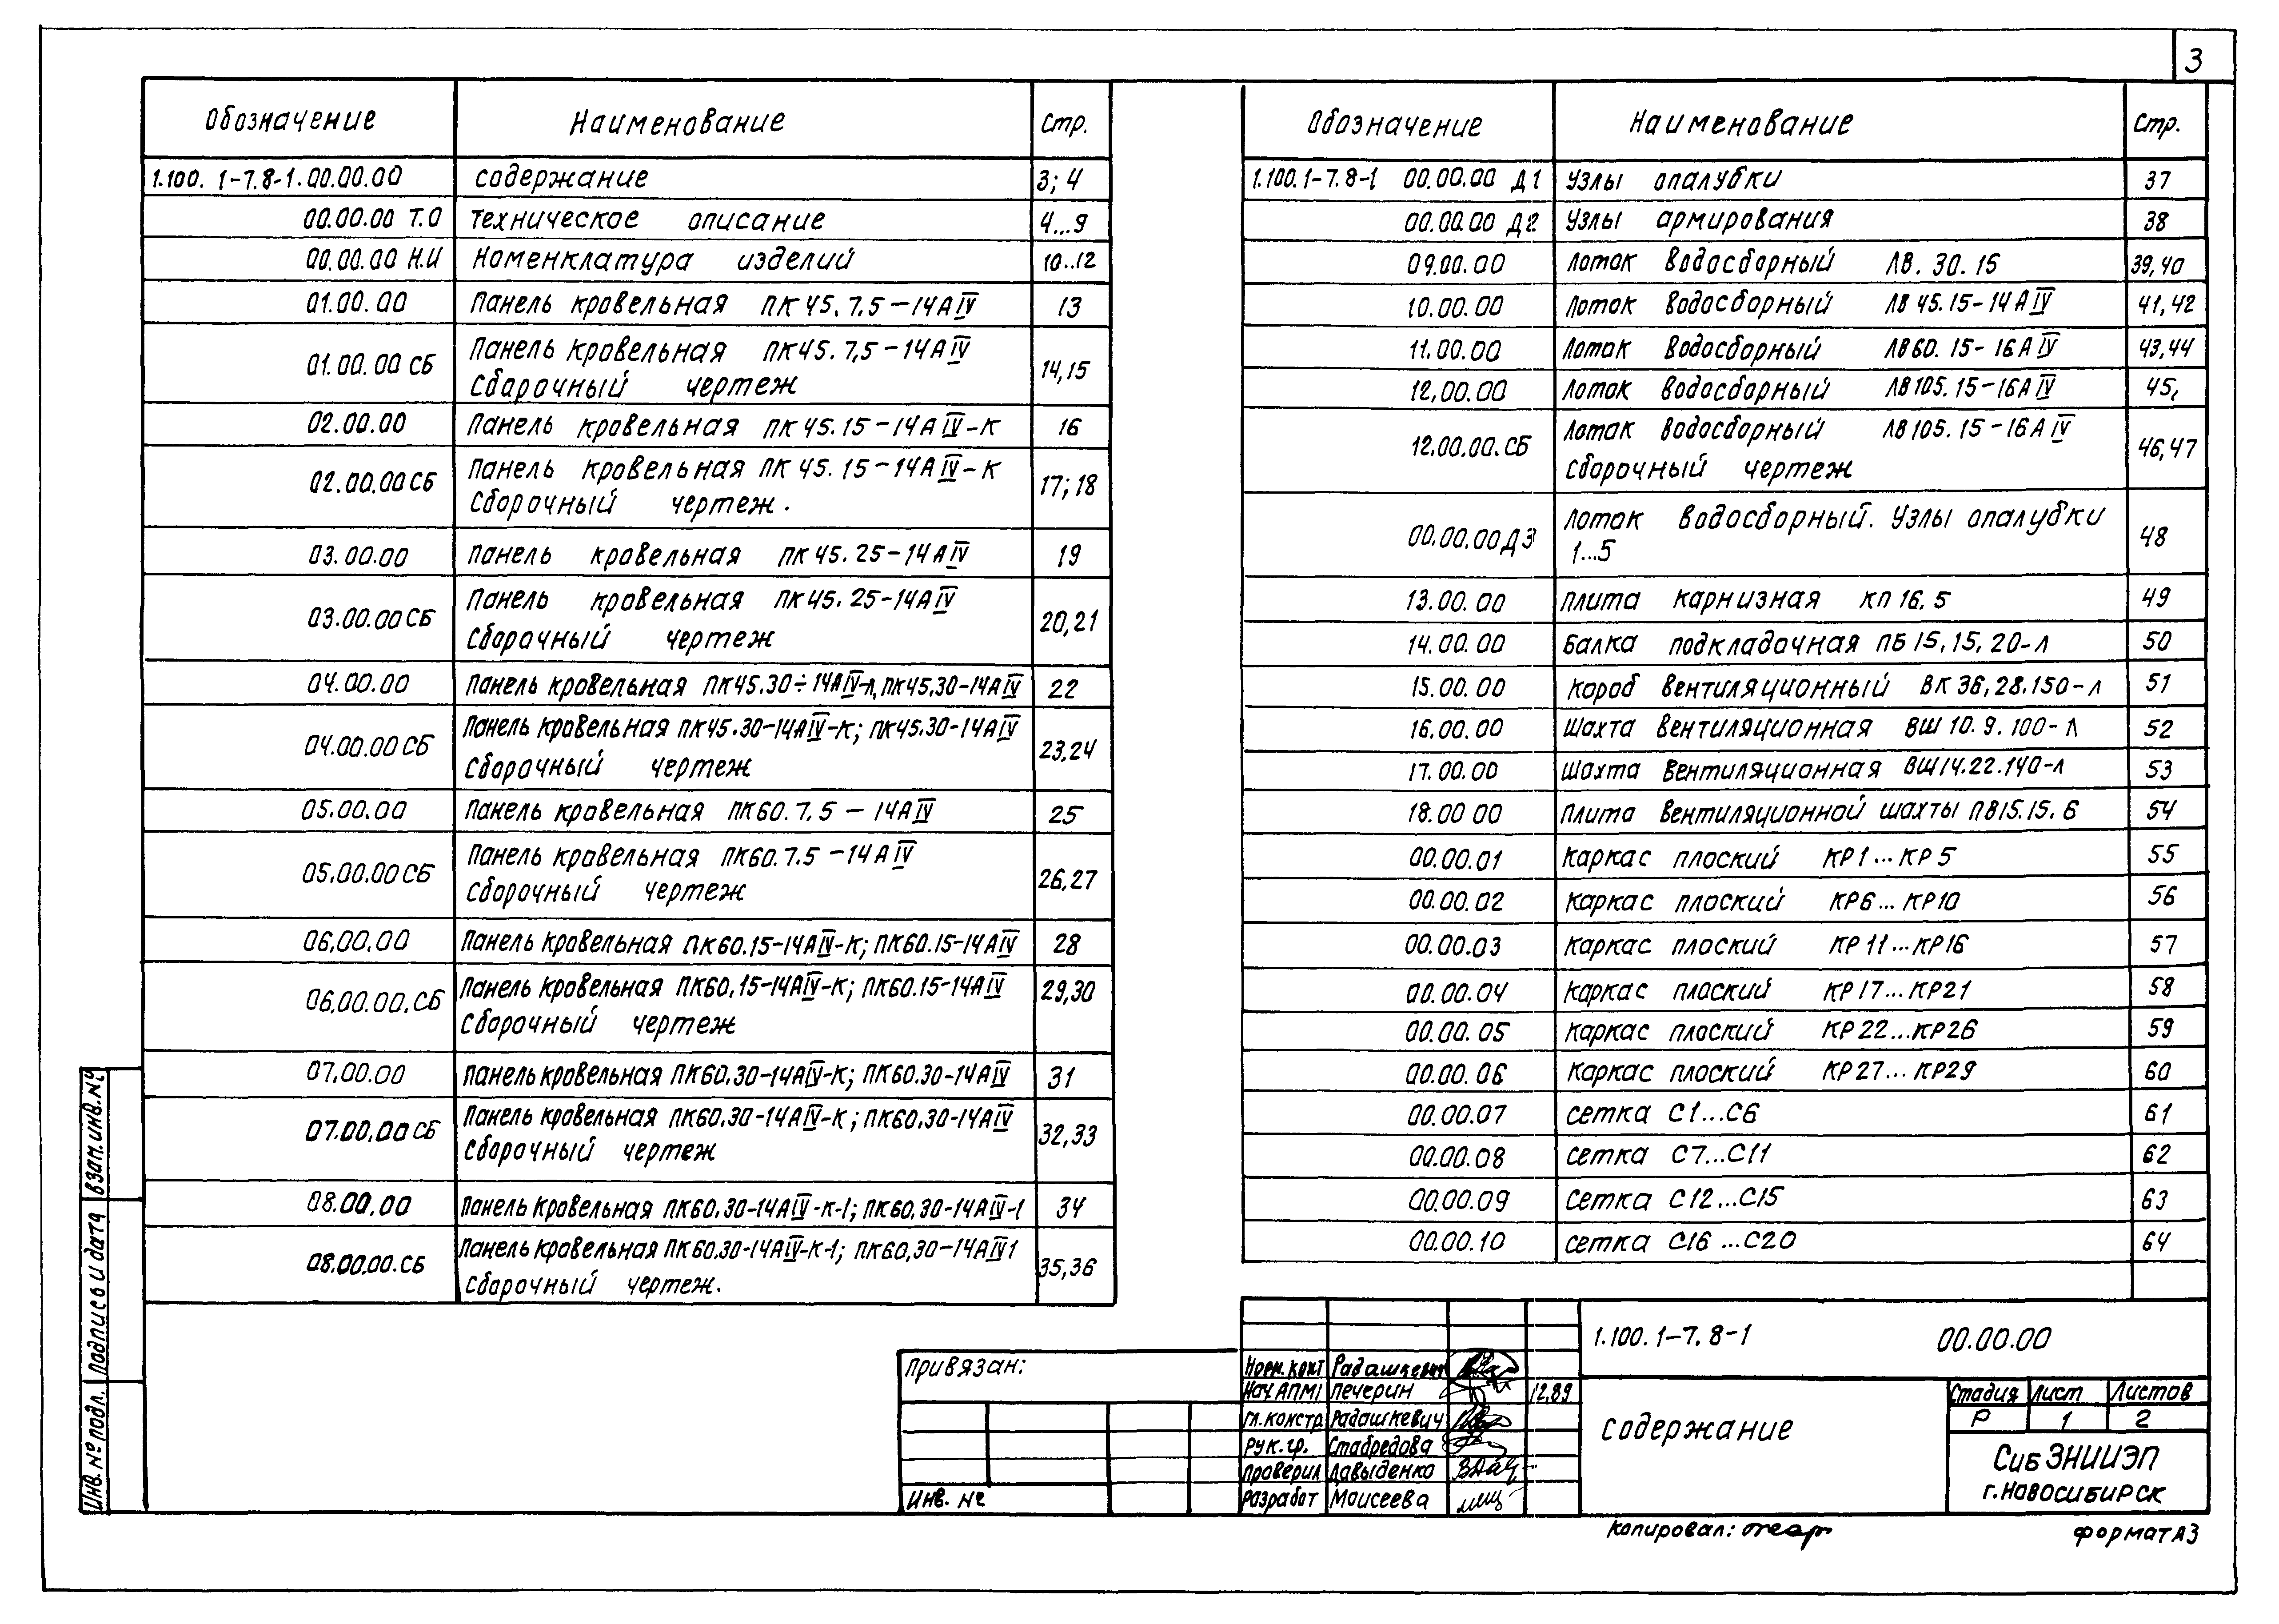 3
Обозначение Наименование Стр.
1.100. 1-7.8-1.00.00.00 содержание 3; 4
00.00.00 Т.О техническое описание 4...9
00.00.00 Н.И Номенклатура изделий 10..12
01.00.00 Панель кровельная ПК 45.7.5-14АIV 13
01.00.00 СБ Панель кровельная ПК45.7,5-14АIV 14,15
Сборочный чертеж
02.00.00 Панель кровельная ПК 45.15-14АIV-К 16
02.00.00 СБ Панель кровельная ПК 45.15-14АIV-К 17; 18
Сборочный чертеж.
03.00.00 Панель кровельная ПК 45.25-14АIV 19
03.00.00 СБ Панель кровельная ПК45.25-14АIV 20,21
Сборочный чертеж
04.00.00 Панель кровельная ПК45.30÷14АIV-Л, ПК45,30-14АIV 22
04.00.00 СБ Панель кровельная ПК45.30-14АIV-К; ПК45.30-14АIV 23,24
Сборочный чертеж
05.00.00 Панель кровельная ПК60.7,5 - 14АIV 25
05.00.00 СБ Панель кровельная ПК60.7.5-14АIV 26,27
Сборочный чертеж
06,00.00 Панель кровельная ПК60.15-14АIV-К; ПК60.15-14АIV 28
06,00.00.СБ Панель кровельная ПК60,15-14АIV-К; ПК60.15-14АIV 29,30
Сборочный чертеж
07,00.00 Панель кровельная ПК60,30-14АIV-К; ПК60.30-14АIV 31
07.00.00 СБ Панель кровельная ПК60,30-14АIV-К; ПК60,30-14АIV 32,33
Сборочный чертеж
08.00.00 Панель кровельная ПК60,30-14АIV-К-1; ПК60,30-14АIV-1 34
08.00.00.СБ Панель кровельная ПК60,30-14АIV-К-1; ПК60,30-14АIV1 35,36
Сборочный чертеж.
Обозначение Наименование Стр.
1.100.1-7.8-1 00.00.00 Д1 Узлы опалубки 37
00.00.00 Д2 Узлы армирования 38
09.00.00 Лоток водосборный ЛВ.30.15 39,40
10.00.00 Лоток водосборный ЛВ 45.15-14АIV 41,42
11.00.00 Лоток водосборный ЛВ60.15-16АIV 43,44
12,00.00 Лоток водосборный ЛВ105.15-16АIV 45,
12.00.00.СБ Лоток водосборный ЛВ105.15-16АIV 46,47
Сборочный чертеж
00.00.00 Д3 Лоток водосборный. Узлы опалубки 48
1...5
13.00.00 Плита карнизная КП 16.5 49
14.00.00 Балка подкладочная ПБ 15,15,20-Л 50
15.00.00 Короб вентиляционный ВК 36,28.150-Л 51
16.00.00 Шахта вентиляционная ВШ 10.9.100-Л 52
17.00.00 Шахта вентиляционная ВШ14.22.140-Л 53
18.00 00 Плита вентиляционной шахты ПВ15.15.6 54
00.00.01 Каркас плоский КР1...КР5 55
00.00.02 Каркас плоский КР6...КР10 56
00.00.03 Каркас плоский КР11...КР16 57
00.00.04 Каркас плоский КР17...КР21 58
00.00.05 Каркас плоский КР22...КР26 59
00.00.06 Каркас плоский КР27...КР29 60
00.00.07 сетка С1...С6 61
00.00.08 сетка С7...С11 62
00.00.09 Сетка С12...С15 63
00.00.10 сетка С16...С20 64
Инв. № подл. Подпись и дата Взам.инв.№
Привязан:
Инв. №
Норм.конт Радашкевич
Нач АПМ1 Печерин 12.89
Гл.констр Радашкевич
Рук.гр. Стабредова
Проверил Давыденко
Разработ Моисеева
1.100.1-7.8-1 00.00.00
содержание
Стадия Лист Листов
Р 1 2
СибЗНИИЭП
г.Новосибирск
Копировал:
Формат А3